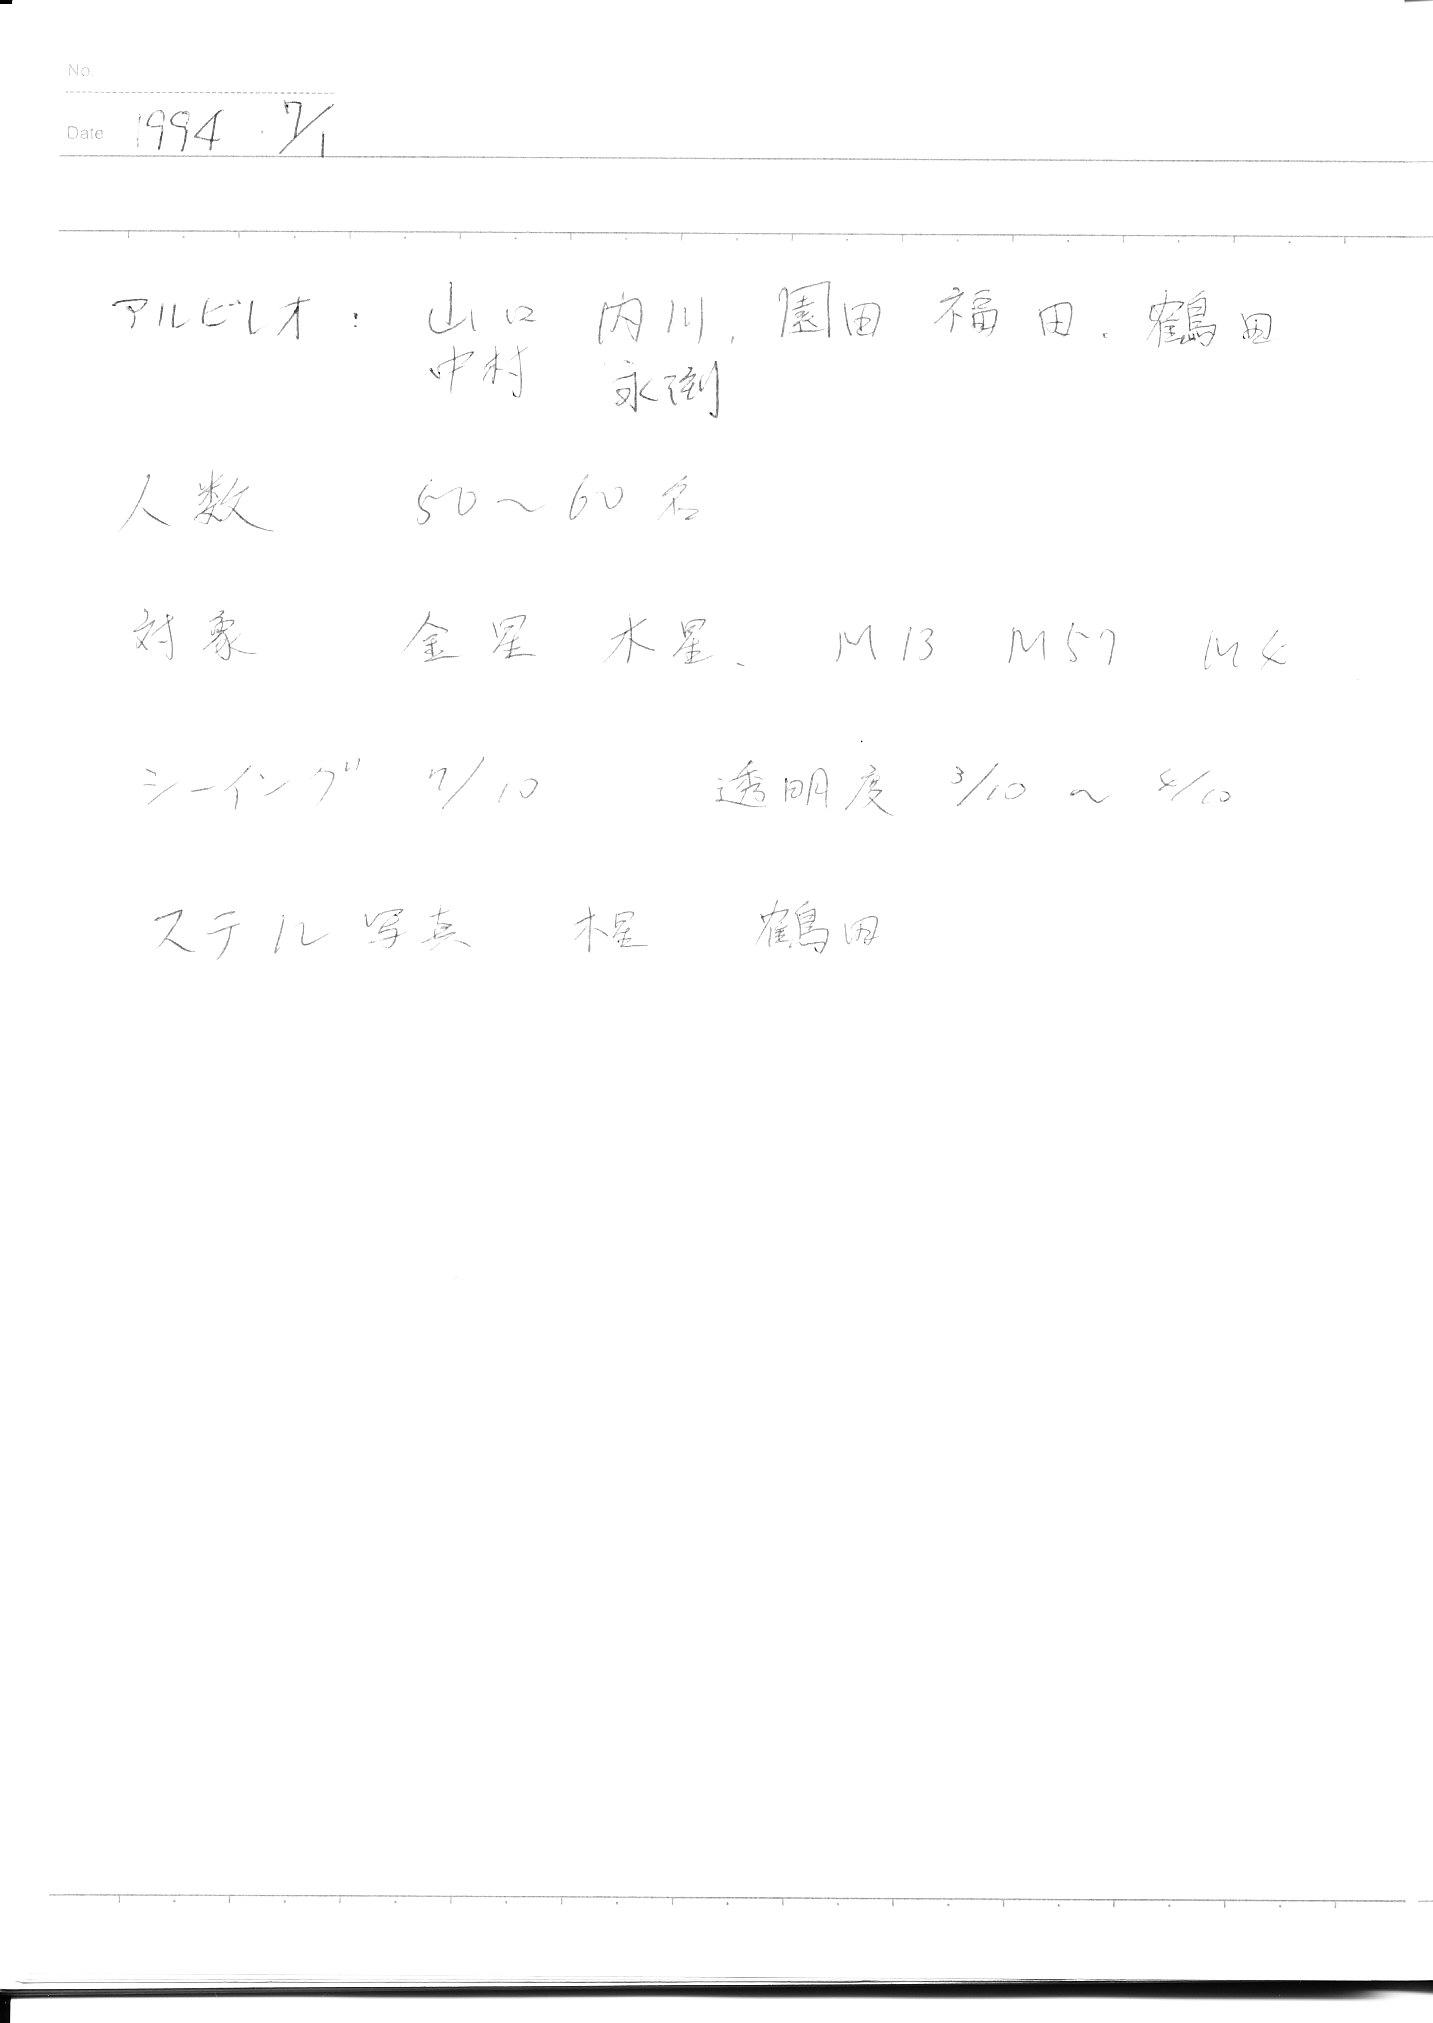 No.
Date 1994 . 7/1
アルビレオ : 山口 内川, 園田 福田. 鶴田
中村 永渕
人数 50～60名
対象 金星 木星、 M13 M57 M4
シーイング 7/10 透明度 3/10 ～ 4/10
ステル写真 木星 鶴田